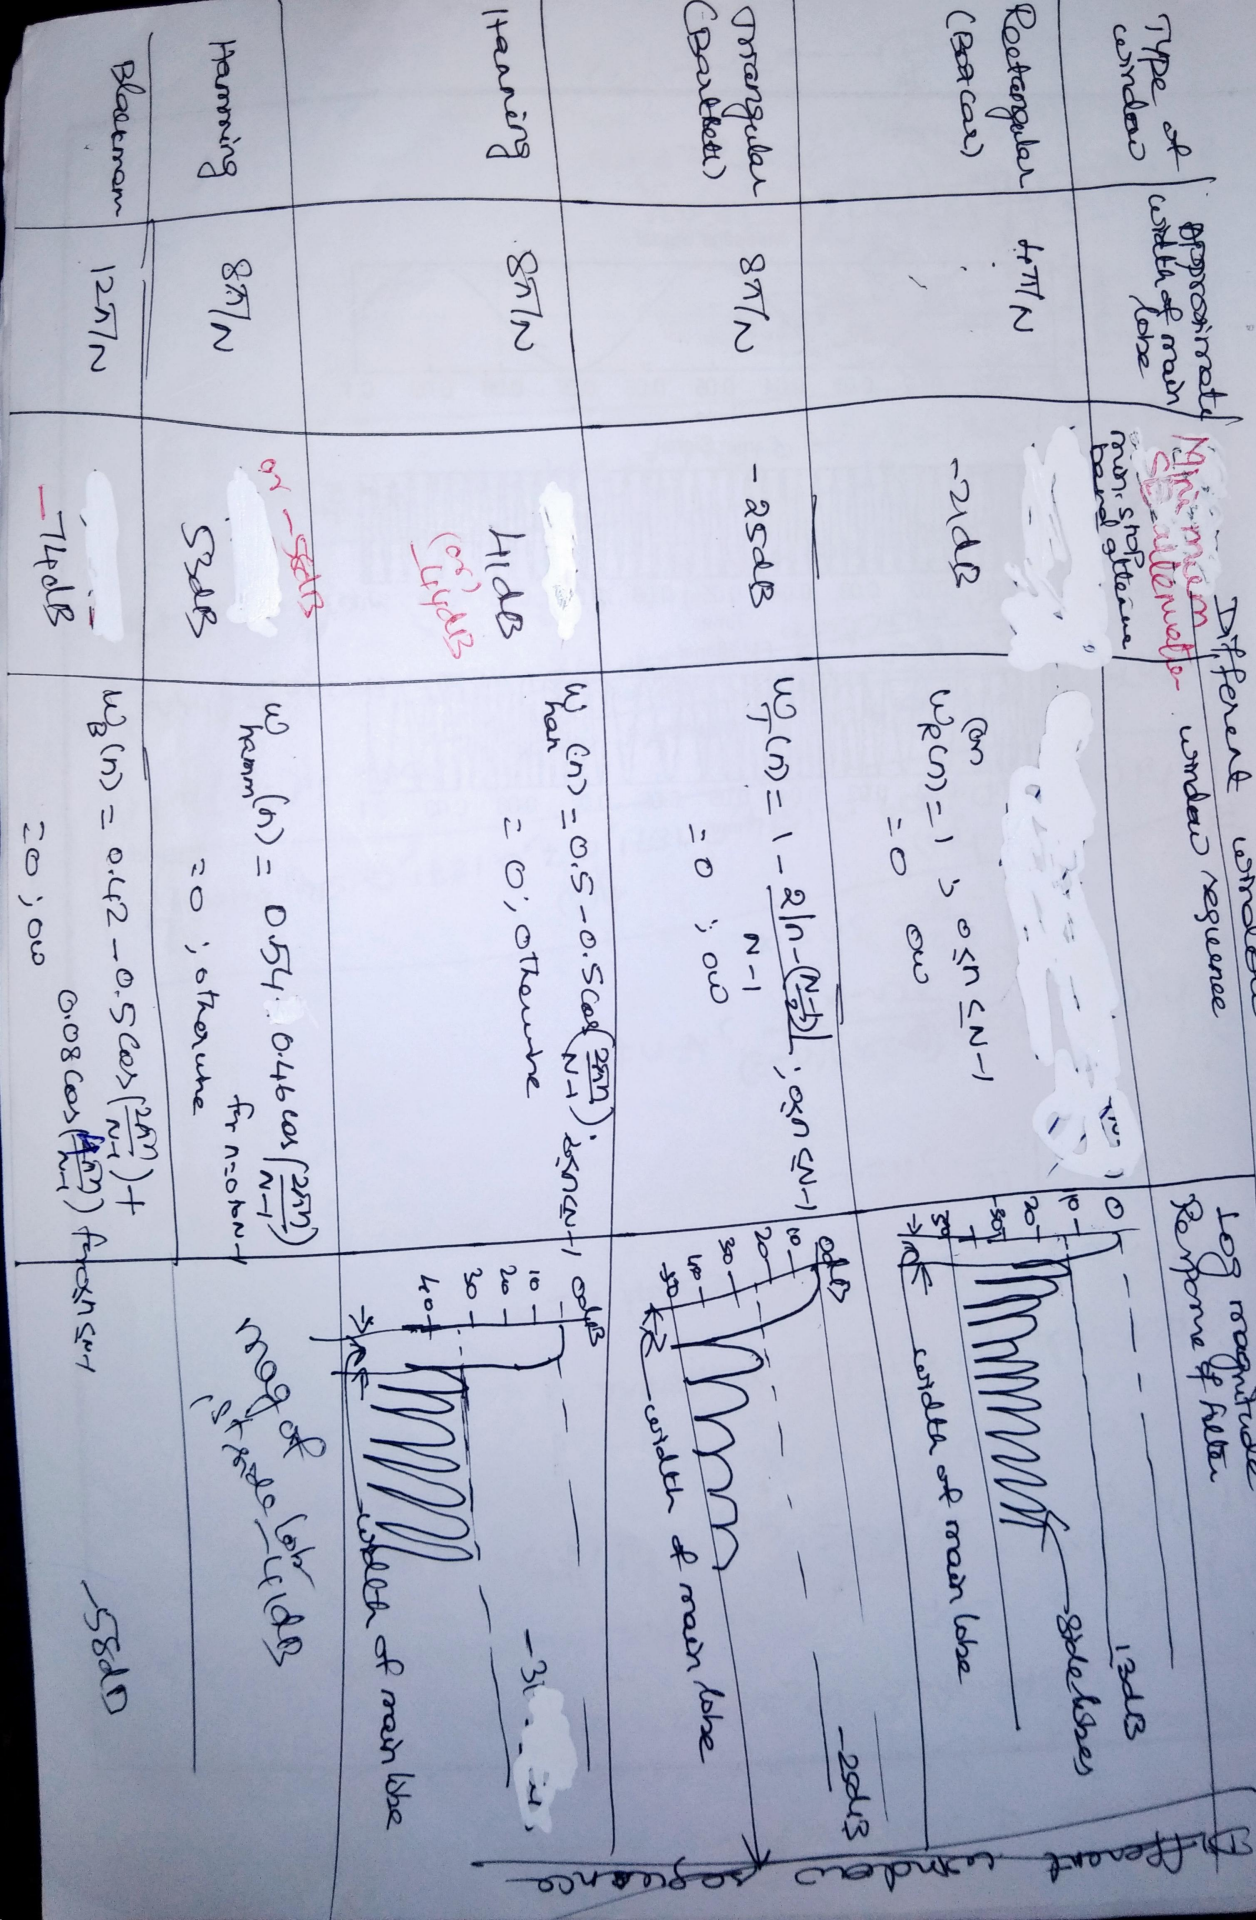 Different window
Type of
window
Approximate
width of main
lobe
Minimum
min. stop
band attenua
window sequence
Log magnitude
Response of filter
Rectangular
(Boxcar)
4π/N
-21dB
(or)
w_R(n) = 1 ; 0≤n≤N-1
= 0 ow
0
10
20
13dB
side lobes
width of main lobe
Triangular
(Bartlett)
8π/N
-25dB
w_T(n) = 1 - 2|n-(N-1/2)|/N-1 ; 0≤n≤N-1
= 0 ; ow
0dB
10
20
30
40
50
-25dB
width of main lobe
Hanning
8π/N
41dB
(or)
-44dB
w_han(n) = 0.5 - 0.5cos(2πn/N-1) ; 0≤n≤N-1
= 0 ; otherwise
0dB
10
20
30
40
-31
width of main lobe
Hamming
8π/N
or -58dB
53dB
w_hamm(n) = 0.54 0.46cos(2πn/N-1)
for n=0 to N-1
= 0 ; otherwise
mag of
1st side lobe -41dB
Blackmam
12π/N
-74dB
w_B(n) = 0.42 - 0.5cos(2πn/N-1) +
0.08cos(4πn/N-1) for 0≤n≤N-1
= 0 ; ow
-58dB
Different window sequence